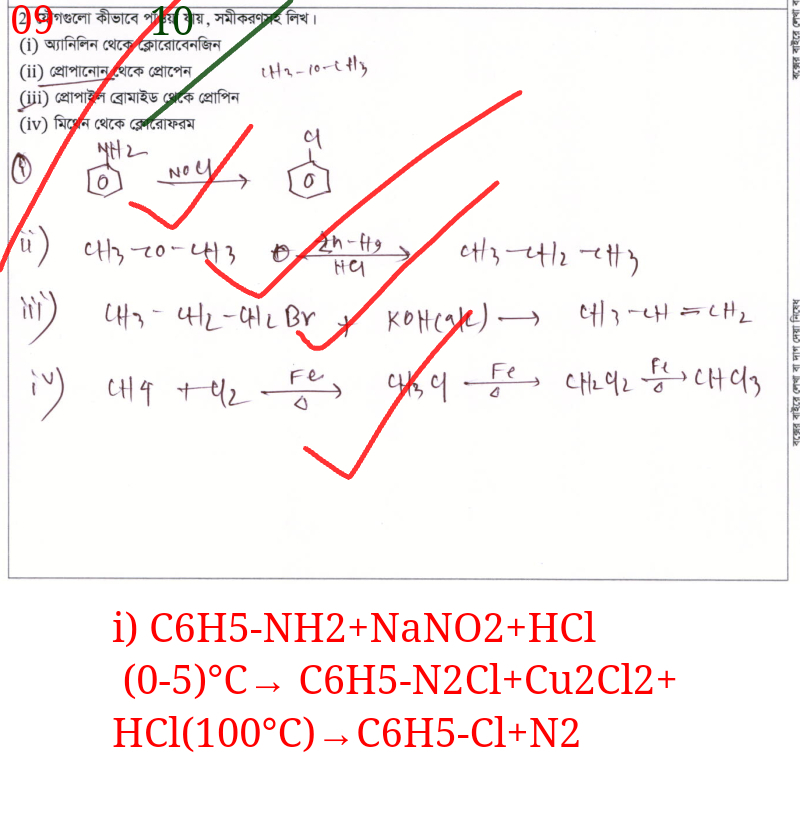 09
10
যৌগগুলো কীভাবে পাওয়া যায়, সমীকরণসহ লিখ।
(i) অ্যানিলিন থেকে ক্লোরোবেনজিন
(ii) প্রোপানোন থেকে প্রোপেন CH3-CO-CH3
(iii) প্রোপাইল ব্রোমাইড থেকে প্রোপিন
(iv) মিথেন থেকে ক্লোরোফরম
i NH2 NOCl Cl
ii) CH3-CO-CH3 Zn-Hg HCl → CH3-CH2-CH3
iii) CH3-CH2-CH2Br + KOH(alc) → CH3-CH=CH2
iv) CH4 + Cl2 Fe Δ → CH3Cl Fe Δ → CH2Cl2 Fe Δ → CHCl3
i) C6H5-NH2+NaNO2+HCl
(0-5)°C→ C6H5-N2Cl+Cu2Cl2+
HCl(100°C)→C6H5-Cl+N2